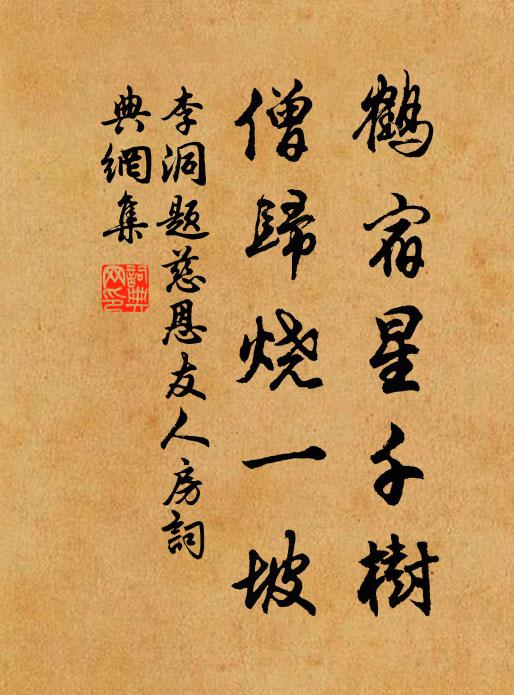 鶴宿星千樹
僧歸燒一坡
李洞題慈恩友人房詞
典網集
詞典
网印